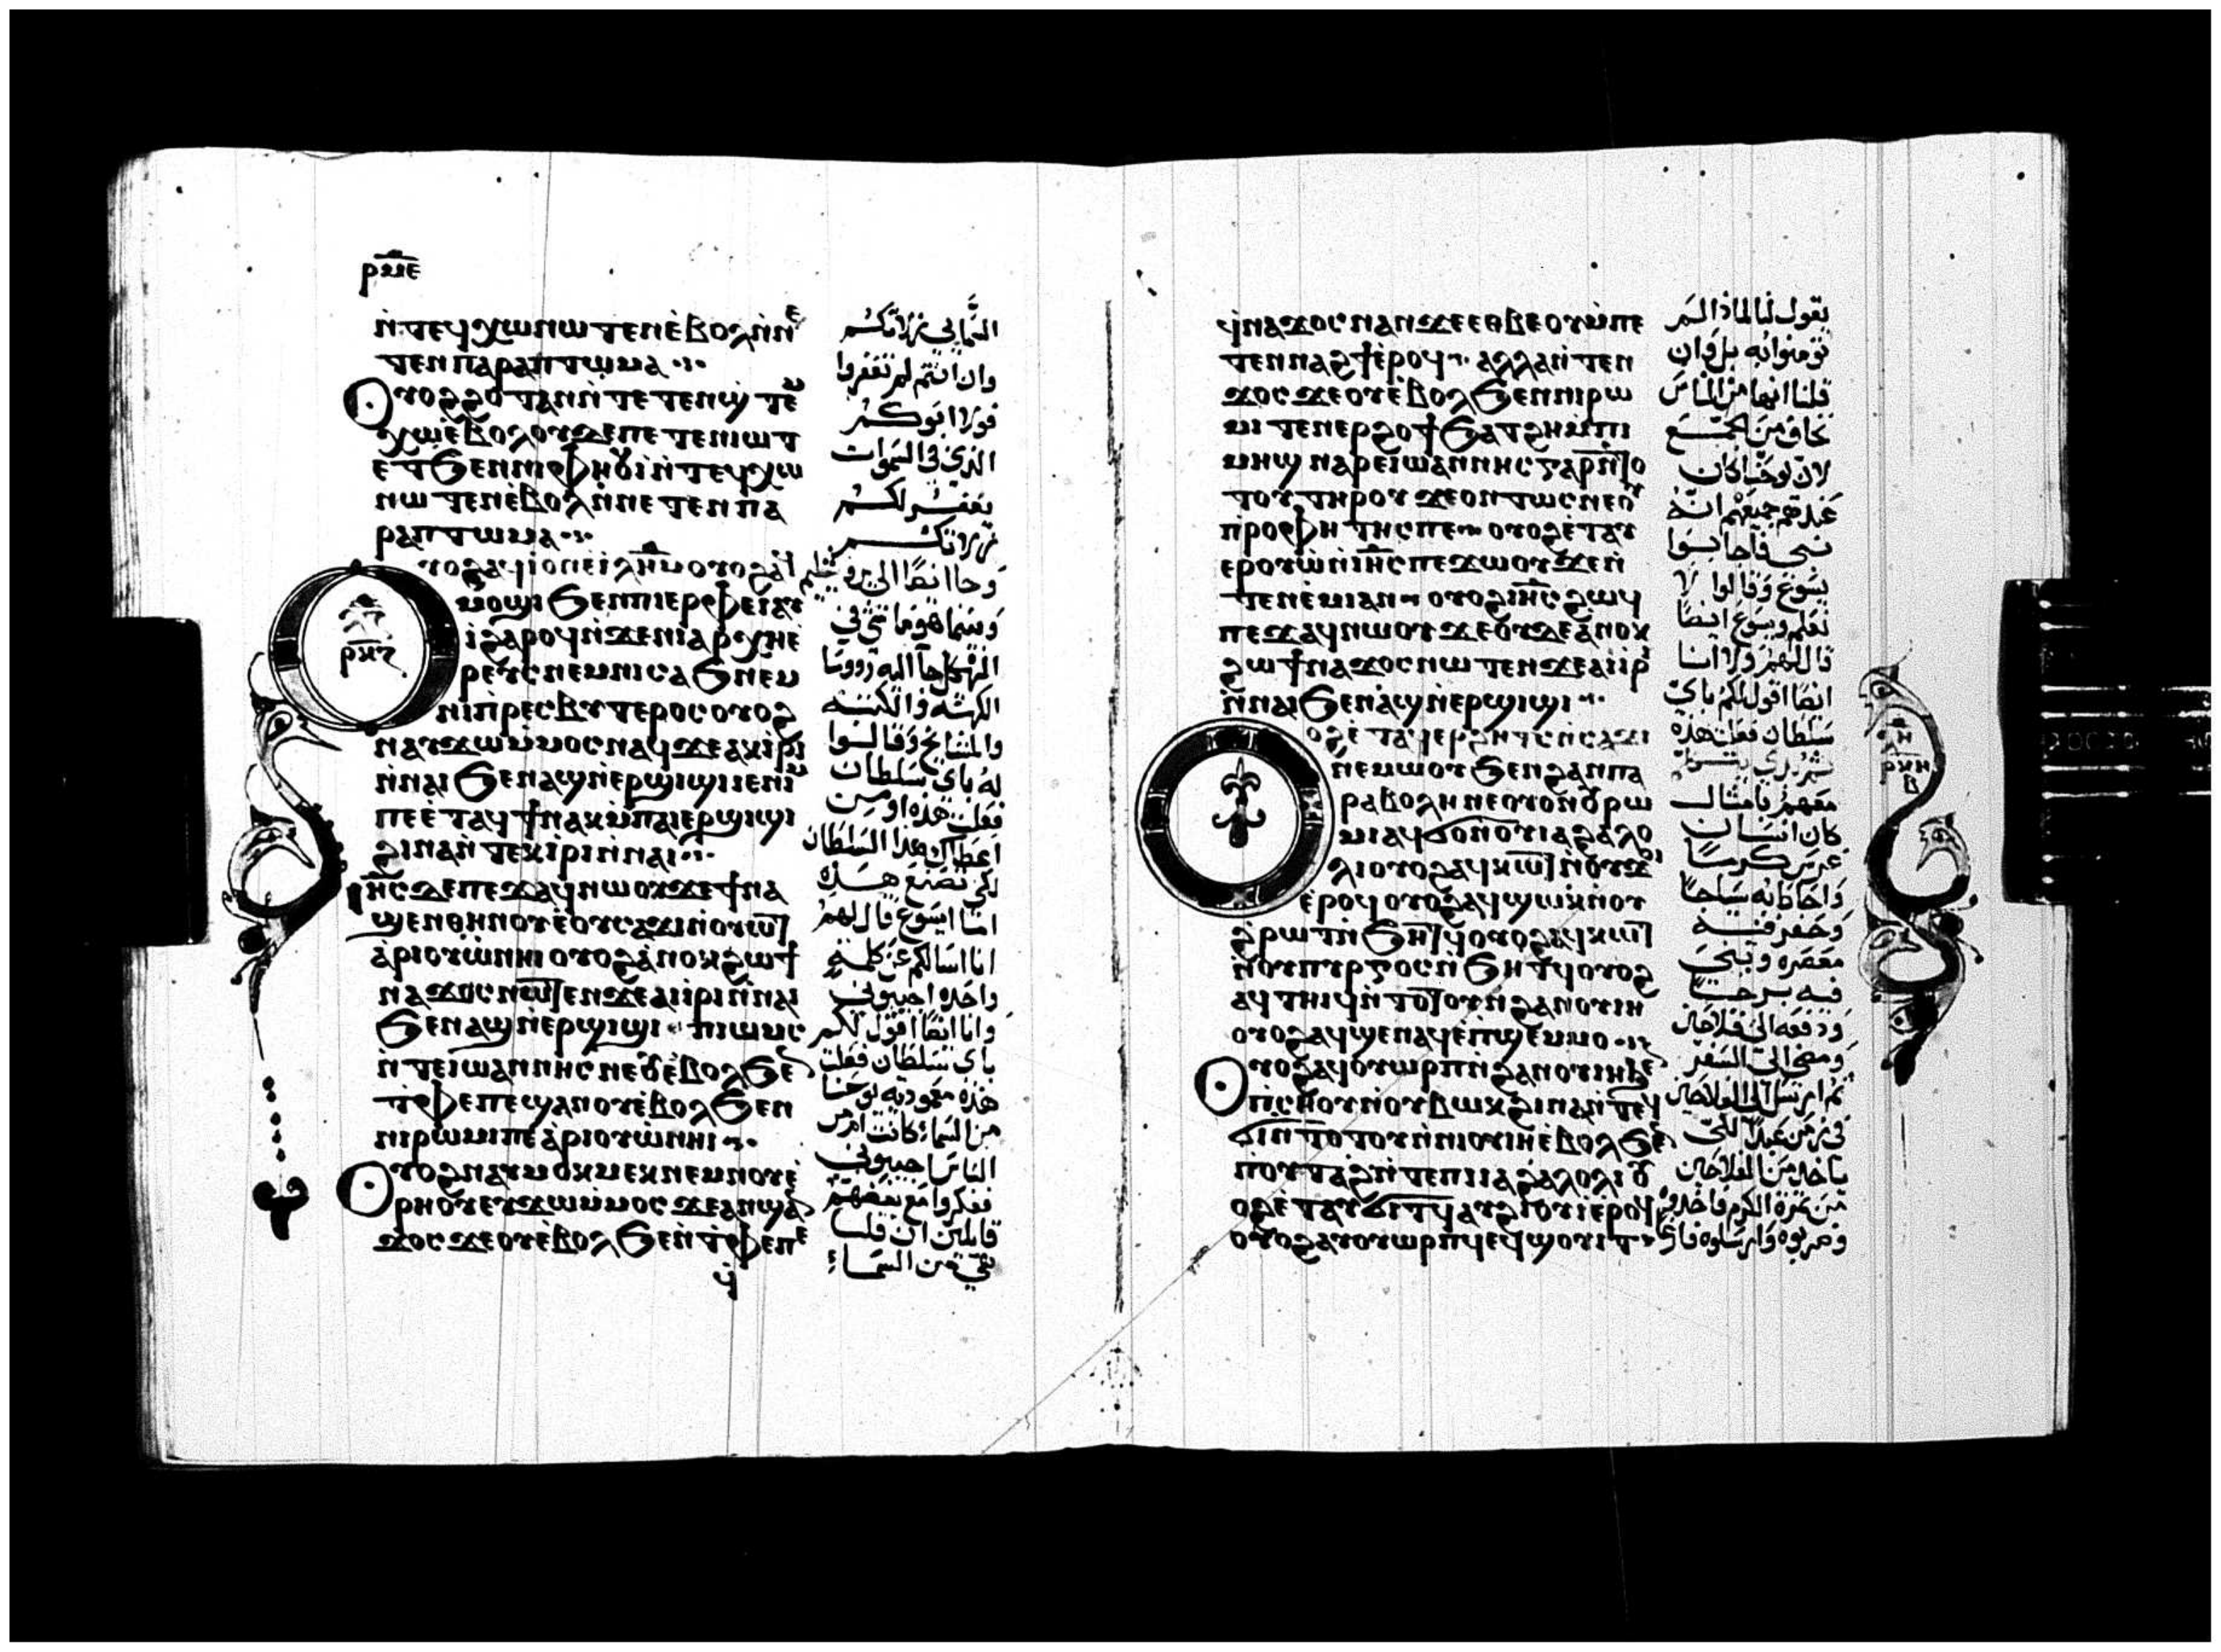 ⲣⲙⲉ
ⲛ̀ⲧⲉϥⲭⲱ ⲛⲱⲧⲉⲛ ⲉ̀ⲃⲟⲗ ⲛ̀ⲛⲉ
ⲧⲉⲛⲡⲁⲣⲁⲡⲧⲱⲙⲁ
ⲟⲩⲟϩ ϩⲟⲧⲁⲛ ⲛ̀ⲧⲉⲧⲉⲛϣ̀ⲧⲉⲙ
ⲭⲱ ⲉ̀ⲃⲟⲗ ⲟⲩⲇⲉ ⲡⲉⲧⲉⲛⲓⲱⲧ
ⲉⲧϧⲉⲛ ⲛⲓⲫⲏⲟⲩⲓ̀ ⲛ̀ⲧⲉϥⲭⲱ
ⲛⲱⲧⲉⲛ ⲉ̀ⲃⲟⲗ ⲛ̀ⲛⲉⲧⲉⲛⲡⲁ
ⲣⲁⲡⲧⲱⲙⲁ
ⲟⲩⲟϩ ⲁϥⲓ̀ ⲟⲛ ⲉ̀ⲓⲗ̅ⲏ̅ⲙ̅ ⲟⲩⲟϩ ⲁϥ
ⲙⲟϣⲓ ϧⲉⲛ ⲡⲓⲉⲣⲫⲉⲓ ⲁⲩ
ⲓ̀ ϩⲁⲣⲟϥ ⲛ̀ϫⲉ ⲛⲓⲁⲣⲭⲏⲉ̀
ⲣⲉⲩⲥ ⲛⲉⲙ ⲛⲓⲥⲁϧ ⲛⲉⲙ
ⲛⲓⲡ̀ⲣⲉⲥⲃⲩⲧⲉⲣⲟⲥ ⲟⲩⲟϩ
ⲛⲁⲩϫⲱ ⲙ̀ⲙⲟⲥ ⲛⲁϥ ϫⲉ ⲁⲕⲓ̀ⲣⲓ
ⲛ̀ⲛⲁⲓ ϧⲉⲛ ⲁϣ ⲛ̀ⲉⲣϣⲓϣⲓ ⲓⲉ ⲛⲓⲙ
ⲡⲉ ⲉ̀ⲧⲁϥϯ ⲛⲁⲕ ⲙ̀ⲡⲁⲓⲉⲣϣⲓϣⲓ
ϩⲓⲛⲁ ⲛ̀ⲧⲉⲕⲓ̀ⲣⲓ ⲛ̀ⲛⲁⲓ
ⲓⲏ̅ⲥ̅ ⲇⲉ ⲡⲉϫⲁϥ ⲛⲱⲟⲩ ϫⲉ ϯⲛⲁ
ϣⲉⲛ ⲑⲏⲛⲟⲩ ⲉ̀ⲟⲩⲥⲁϫⲓ ⲛ̀ⲟⲩⲱⲧ
ⲁ̀ⲣⲓⲟⲩⲱ̀ ⲛⲏⲓ ⲟⲩⲟϩ ⲁ̀ⲛⲟⲕ ϩⲱ ϯ
ⲛⲁϫⲟⲥ ⲛⲱⲧⲉⲛ ϫⲉ ⲁⲓⲓ̀ⲣⲓ ⲛ̀ⲛⲁⲓ
ϧⲉⲛ ⲁϣ ⲛ̀ⲉⲣϣⲓϣⲓ ⲡⲓⲱⲙⲥ
ⲛ̀ⲧⲉ ⲓⲱⲁⲛⲛⲏⲥ ⲛⲉ ⲟⲩ ⲉ̀ⲃⲟⲗ ϧⲉⲛ
ⲧ̀ⲫⲉ ⲡⲉ ϣⲁⲛ ⲟⲩ ⲉ̀ⲃⲟⲗ ϧⲉⲛ
ⲛⲓⲣⲱⲙⲓ ⲡⲉ ⲁ̀ⲣⲓⲟⲩⲱ̀ ⲛⲏⲓ
ⲟⲩⲟϩ ⲛⲁⲩⲙⲟⲕⲙⲉⲕ ⲛⲉⲙ ⲛⲟⲩⲉ̀
ⲣⲏⲟⲩ ⲉⲩϫⲱ ⲙ̀ⲙⲟⲥ ϫⲉ ⲁⲛϣⲁⲛ
ϫⲟⲥ ϫⲉ ⲟⲩ ⲉ̀ⲃⲟⲗ ϧⲉⲛ ⲧ̀ⲫⲉ ⲡⲉ
ϥ̀
السمائي زلاتكم
وان انتم لم تغفروا
فولا ابوكم
الذي في السموات
يغفر لكم
زلاتكم
وجا ايضا الي يروشليم
وبينما هو ماشي في
الهيكل جا اليه رووسا
الكهنة والكتبة
والمشايخ وقالوا
له باي سلطان
فعلت هذه او من
اعطاك هذا السلطان
لكي تصنع هذه
اما ايسوع قال لهم
انا اسالكم عن كلمة
واحده اجيبوني
وانا ايضا اقول لكم
باي سلطان فعلت
هذه معمودية يوحنا
من السماء كانت ام من
الناس اجيبوني
ففكروا مع بعضهم
قايلين ان قلنا
هي من السماء
ϥ̀ⲛⲁϫⲟⲥ ⲛⲁⲛ ϫⲉ ⲉⲑⲃⲉ ⲟⲩ ⲙ̀ⲡⲉ
ⲧⲉⲛⲛⲁϩϯ ⲉ̀ⲣⲟϥ ⲁⲗⲗⲁ ⲛ̀ⲧⲉⲛ
ϫⲟⲥ ϫⲉ ⲟⲩ ⲉ̀ⲃⲟⲗ ϧⲉⲛ ⲛⲓⲣⲱ
ⲙⲓ ⲧⲉⲛⲉⲣϩⲟϯ ϧⲁⲧϩⲏ ⲙ̀ⲡⲓ
ⲙⲏϣ ⲛⲁⲣⲉ ⲓⲱⲁⲛⲛⲏⲥ ⲅⲁⲣ ⲛ̀ⲧⲟ
ⲧⲟⲩ ⲧⲏⲣⲟⲩ ϫⲉ ⲟⲛⲧⲱⲥ ⲛⲉ ⲟⲩ
ⲡ̀ⲣⲟⲫⲏⲧⲏⲥ ⲡⲉ ⲟⲩⲟϩ ⲉ̀ⲧⲁⲩ
ⲉⲣⲟⲩⲱ̀ ⲛ̀ⲓⲏ̅ⲥ̅ ⲡⲉϫⲱⲟⲩ ϫⲉ ⲛ̀
ⲧⲉⲛⲉ̀ⲙⲓ ⲁⲛ ⲟⲩⲟϩ ⲓⲏ̅ⲥ̅ ϩⲱϥ
ⲡⲉϫⲁϥ ⲛⲱⲟⲩ ϫⲉ ⲟⲩⲇⲉ ⲁ̀ⲛⲟⲕ
ϩⲱ ϯⲛⲁϫⲟⲥ ⲛⲱⲧⲉⲛ ϫⲉ ⲁⲓⲓ̀ⲣⲓ
ⲛ̀ⲛⲁⲓ ϧⲉⲛ ⲁ̀ϣ ⲛ̀ⲉⲣϣⲓϣⲓ
ⲟⲩⲟϩ ⲉ̀ⲧⲁϥⲉⲣϩⲏⲧⲥ ⲛ̀ⲥⲁϫⲓ
ⲛⲉⲙⲱⲟⲩ ϧⲉⲛ ϩⲁⲛⲡⲁ
ⲣⲁⲃⲟⲗⲏ ⲛⲉ ⲟⲩⲟⲛ ⲟⲩⲣⲱ
ⲙⲓ ⲁϥϭⲟ ⲛ̀ⲟⲩⲓⲁϩⲁⲗⲟ
ⲗⲓ ⲟⲩⲟϩ ⲁϥⲕⲱⲧ ⲛ̀ⲟⲩϫⲟⲓ
ⲉ̀ⲣⲟϥ ⲟⲩⲟϩ ⲁϥϣⲱⲕ ⲛ̀ⲟⲩ
ϩ̀ⲣⲱⲧ ⲛ̀ϧⲏⲧϥ ⲟⲩⲟϩ ⲁϥⲕⲱⲧ
ⲛ̀ⲟⲩⲡⲩⲣⲅⲟⲥ ⲛ̀ϧⲏⲧϥ ⲟⲩⲟϩ
ⲁϥⲧⲏⲓϥ ⲛ̀ⲧⲟⲧⲟⲩ ⲛ̀ϩⲁⲛⲟⲩⲓⲏ
ⲟⲩⲟϩ ⲁϥϣⲉⲛⲁϥ ⲉ̀ⲡϣⲉⲙⲙⲟ
ⲟⲩⲟϩ ⲁϥⲟⲩⲱⲣⲡ ⲛ̀ϩⲁⲛⲟⲩⲓⲏ ϧⲉⲛ
ⲡ̀ⲥⲏⲟⲩ ⲛ̀ⲟⲩⲃⲱⲕ ϩⲓⲛⲁ ⲛ̀ⲧⲉϥ
ϭⲓ ⲛ̀ⲧⲟⲧⲟⲩ ⲛ̀ⲛⲓⲟⲩⲓⲏ ⲉ̀ⲃⲟⲗ ϧⲉⲛ
ⲡ̀ⲟⲩⲧⲁϩ ⲛ̀ⲧⲉ ⲡⲓⲓⲁϩⲁⲗⲟⲗⲓ ⲟⲩ
ⲟϩ ⲉ̀ⲧⲁⲩϭⲓⲧϥ ⲁⲩϩⲓⲟⲩⲓ̀ ⲉ̀ⲣⲟϥ
ⲟⲩⲟϩ ⲁⲩⲟⲩⲱⲣⲡϥ ⲉϥϣⲟⲩⲓⲧ
يقول لنا لماذا لم
تومنوا به بل وان
قلنا انها من الناس
نخاف من الجمع
لان يوحنا كان
عندهم جميعهم انه
نبي فاجابوا
يسوع وقالوا لا
نعلم ويسوع ايضا
قال لهم ولا انا
ايضا اقول لكم باي
سلطان فعلت هذه
معهم بامثال
كان انسان
غرس كرما
واحاط به سياجا
وحفر فيه
معصره وبنى
فيه برجا
ودفعه الى فلاحين
ومضى الى السفر
ثم ارسل الى الفلاحين
في زمن عبدا لكي
ياخذ من الفلاحين
من ثمرة الكرم فاخذوه
وضربوه وارسلوه فارغ
ⲗ̅ⲏ̅
ⲣⲕⲏ
ⲃ